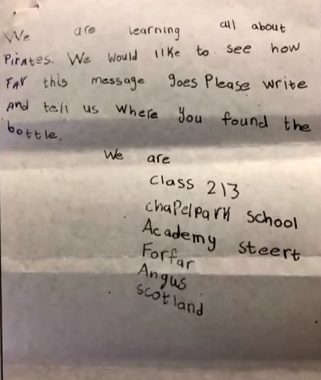 We are learning all about
Pirates. We would like to see how
Far this message goes Please write
And tell us where you found the
bottle.
We are
Class 213
chapelpark school
Academy steert
Forfar
Angus
scotland